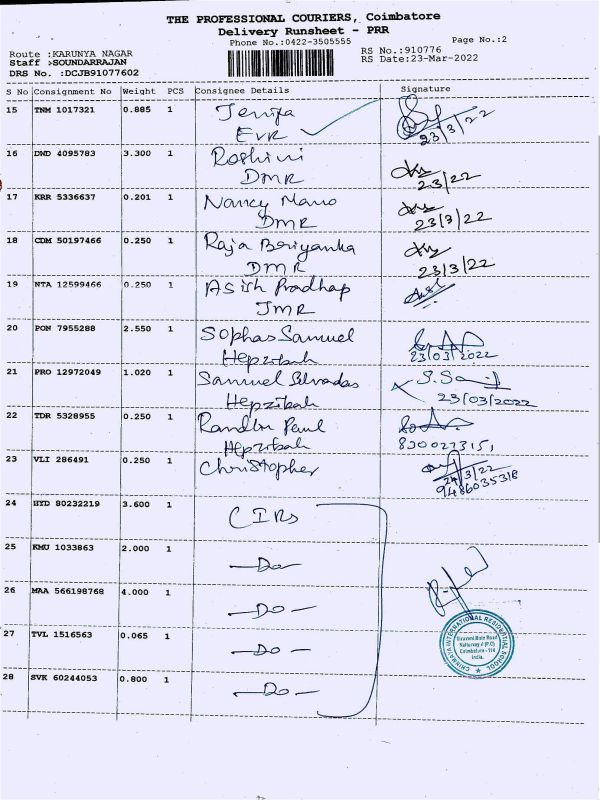 THE PROFESSIONAL COURIERS, Coimbatore
Delivery Runsheet - PRR
Phone No.:0422-3505555
Page No.:2
Route :KARUNYA NAGAR
RS No.:910776
Staff :SOUNDARRAJAN
RS Date:23-Mar-2022
DRS No. :DCJB91077602
S No Consignment No Weight PCS Consignee Details Signature
15 TNM 1017321 0.885 1 Jenifa
EVR 23/3/22
16 DND 4095783 3.300 1 Roshini
DMR 23/3/22
17 KRR 5336637 0.201 1 Nancy Mano
DMR 23/3/22
18 CDM 50197466 0.250 1 Raja
DMR 23/3/22
19 NTA 12599466 0.250 1 Asish Pradhap
JMR
20 PON 7955288 2.550 1 Sophas Samuel
Hepzibah 23/03/2022
21 PRO 12972049 1.020 1 Samuel
Hepzibah 23/03/2022
22 TDR 5328955 0.250 1 Paul
Hepzibah
23 VLI 286491 0.250 1 Christopher
24/3/22
9486035318
24 HYD 80232219 3.600 1 CIRS
25 KMU 1033863 2.000 1 -Do-
26 MAA 566198768 4.000 1 -Do-
27 TVL 1516563 0.065 1 -Do-
28 SVK 60244053 0.800 1 -Do-
CHINMAYA INTERNATIONAL RESIDENTIAL SCHOOL
Siruvani Main Road
Nallurvayal (P.O)
Coimbatore - 114
India.